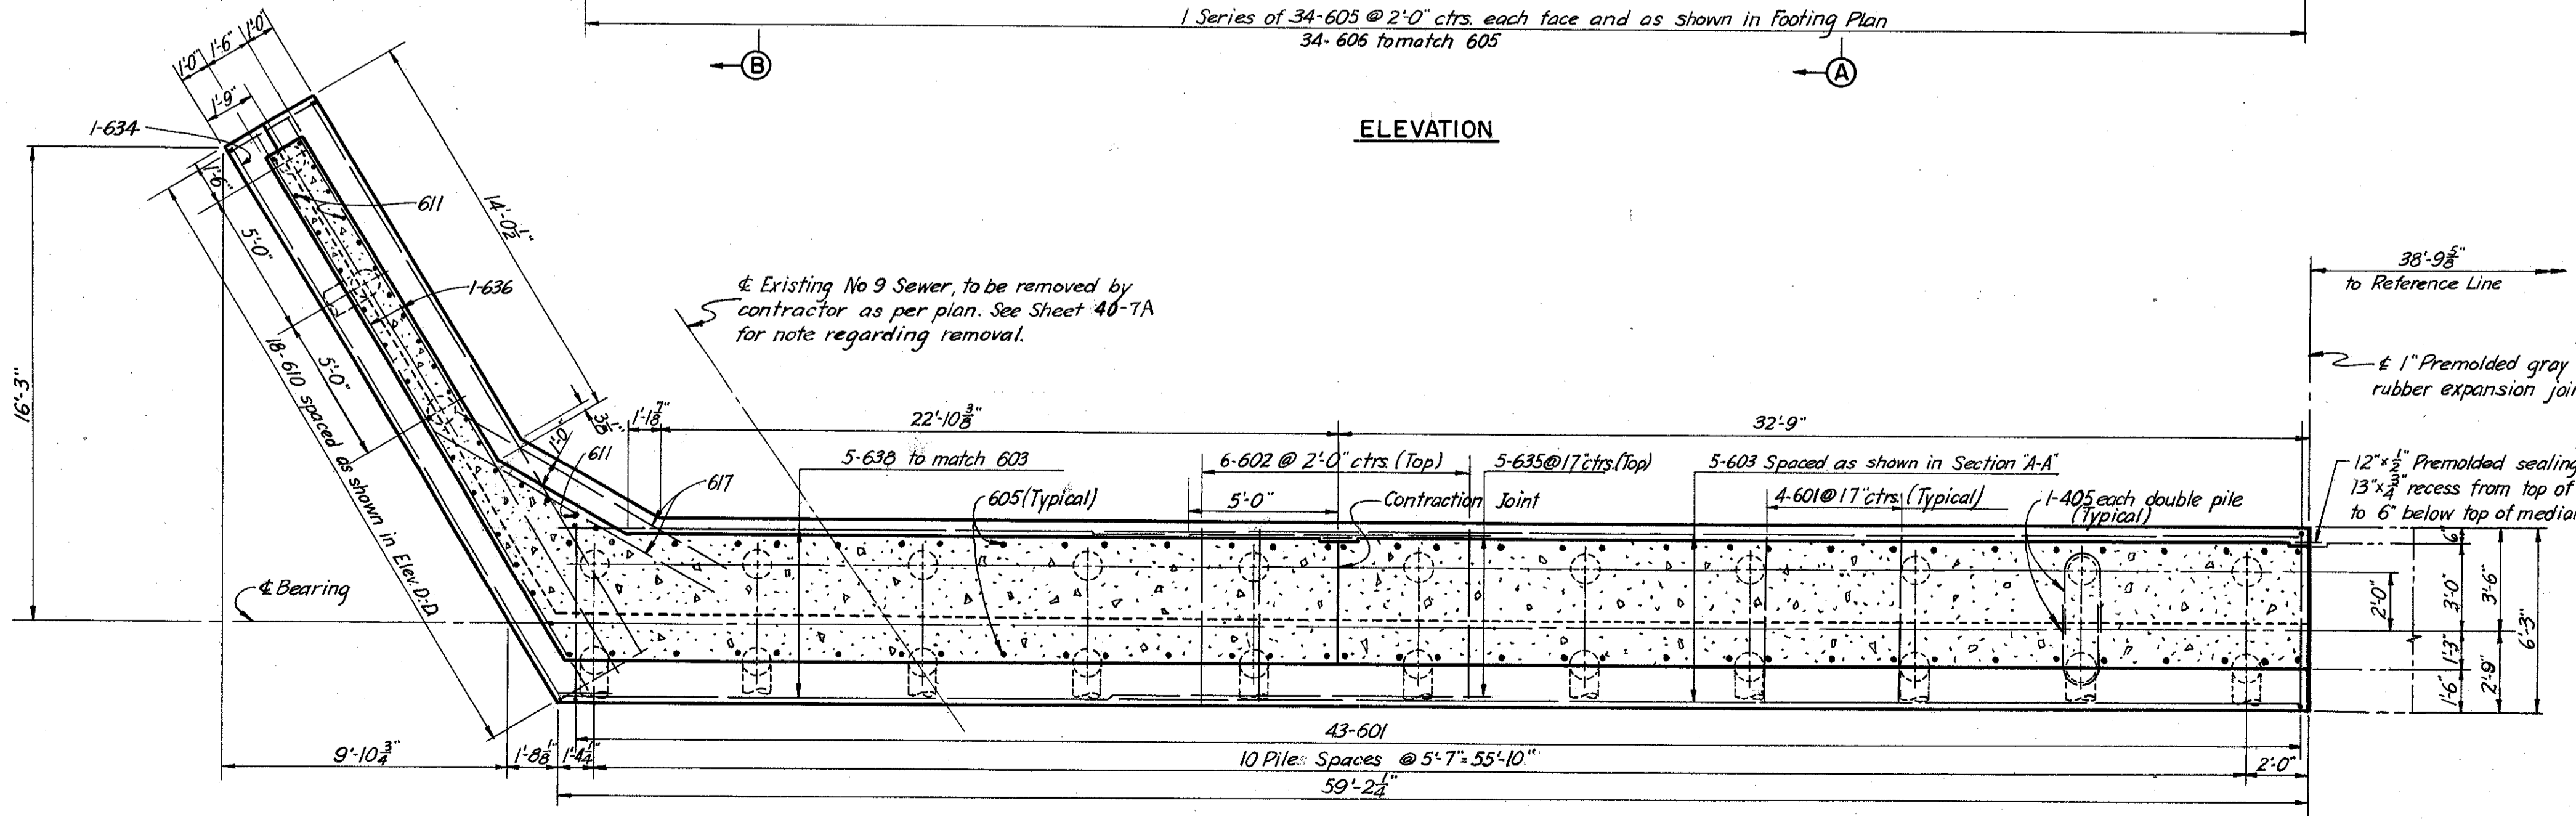 1 Series of 34-605 @ 2'-0" ctrs. each face and as shown in Footing Plan
34-606 to match 605
B
A
ELEVATION
1'-0"
1'-6"
1'-0"
1'-9"
1-634
1'-6"
611
14'-0½"
5'-0"
1-636
5'-0"
18-610 spaced as shown in Elev. D-D
16'-3"
℄ Existing No 9 Sewer, to be removed by
contractor as per plan. See Sheet 40-7A
for note regarding removal.
38'-9⅝"
to Reference Line
℄ 1" Premolded gray
rubber expansion join
1'-0"
1'-1⅞"
22'-10⅜"
32'-9"
611
617
5-638 to match 603
6-602 @ 2'-0" ctrs. (Top)
5-635 @ 17" ctrs. (Top)
5-603 Spaced as shown in Section "A-A"
605 (Typical)
5'-0"
Contraction Joint
4-601 @ 17" ctrs. (Typical)
1-405 each double pile
(Typical)
12" x ½" Premolded sealing
13" x ¾" recess from top of
to 6" below top of media
℄ Bearing
6"
3'-0"
3'-6"
2'-0"
1'-3"
6'-3"
1'-6"
2'-9"
43-601
9'-10¾"
1'-8⅛"
1'-4¼"
10 Piles Spaces @ 5'-7" = 55'-10"
2'-0"
59'-2¼"